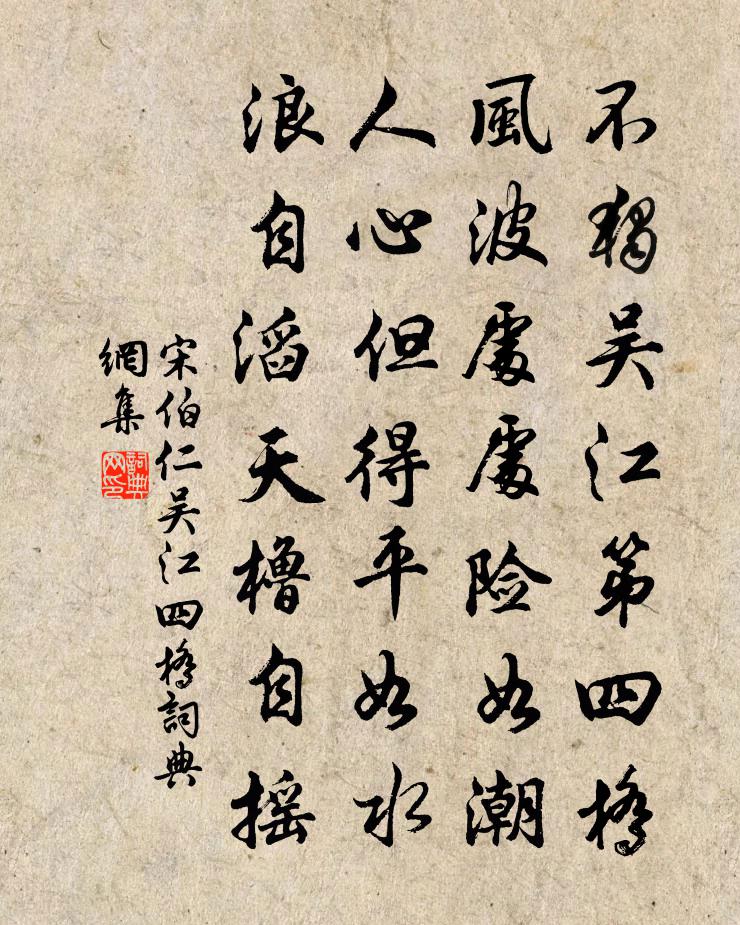 不獨吳江第四橋
風波處處险如潮
人心但得平如水
浪自滔天櫓自摇
宋伯仁吴江四橋詞典
網集
詞典
网印